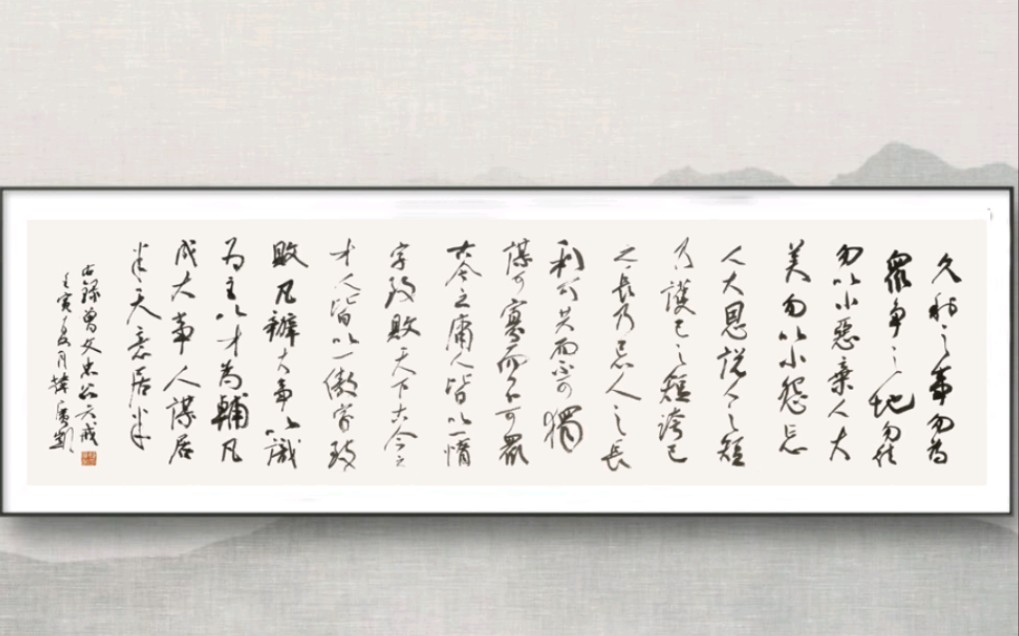 久利之事勿為
眾爭之地勿往
勿以小惡棄人大
美勿以小怨忘
人大恩說人之短
乃護己之短誇己
之長乃忌人之長
利可共而不可獨
謀可寡而不可眾
古今之庸人皆以一惰
字致敗天下古今之
才人皆以一傲字致
敗凡辦大事以識
為主以才為輔凡
成大事人謀居
半天意居半
右錄曾文忠公六戒
壬寅夏月